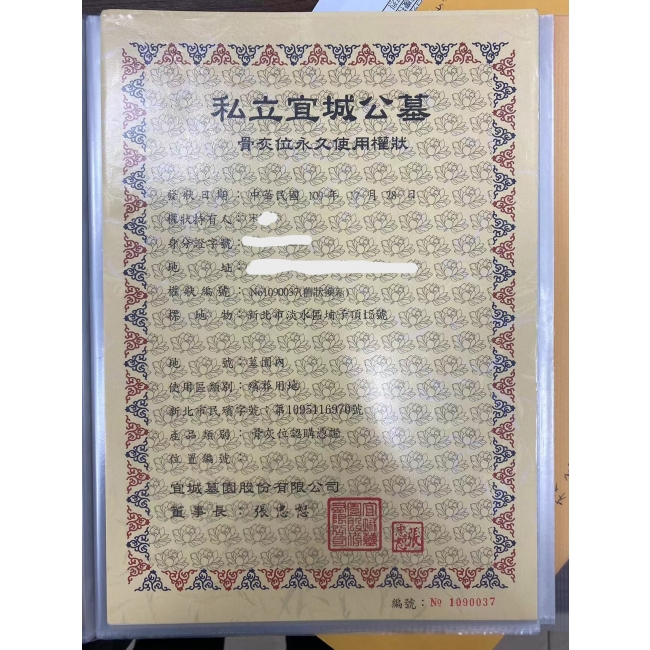 私立宜城公墓
骨灰位永久使用權狀
發狀日期：中華民國 109 年 12 月 28 日
權狀持有人：
身分證字號：
地址：
權狀編號：No1090037(舊狀換新)
標地物：新北市淡水區埔子頂15號
地號：墓園內
使用區類別：殯葬用地
新北市民殯字號：第1095116970號
產品類別：骨灰位認購憑證
位置編號：
宜城墓園股份有限公司
董事長：張忠恕
編號：№ 1090037